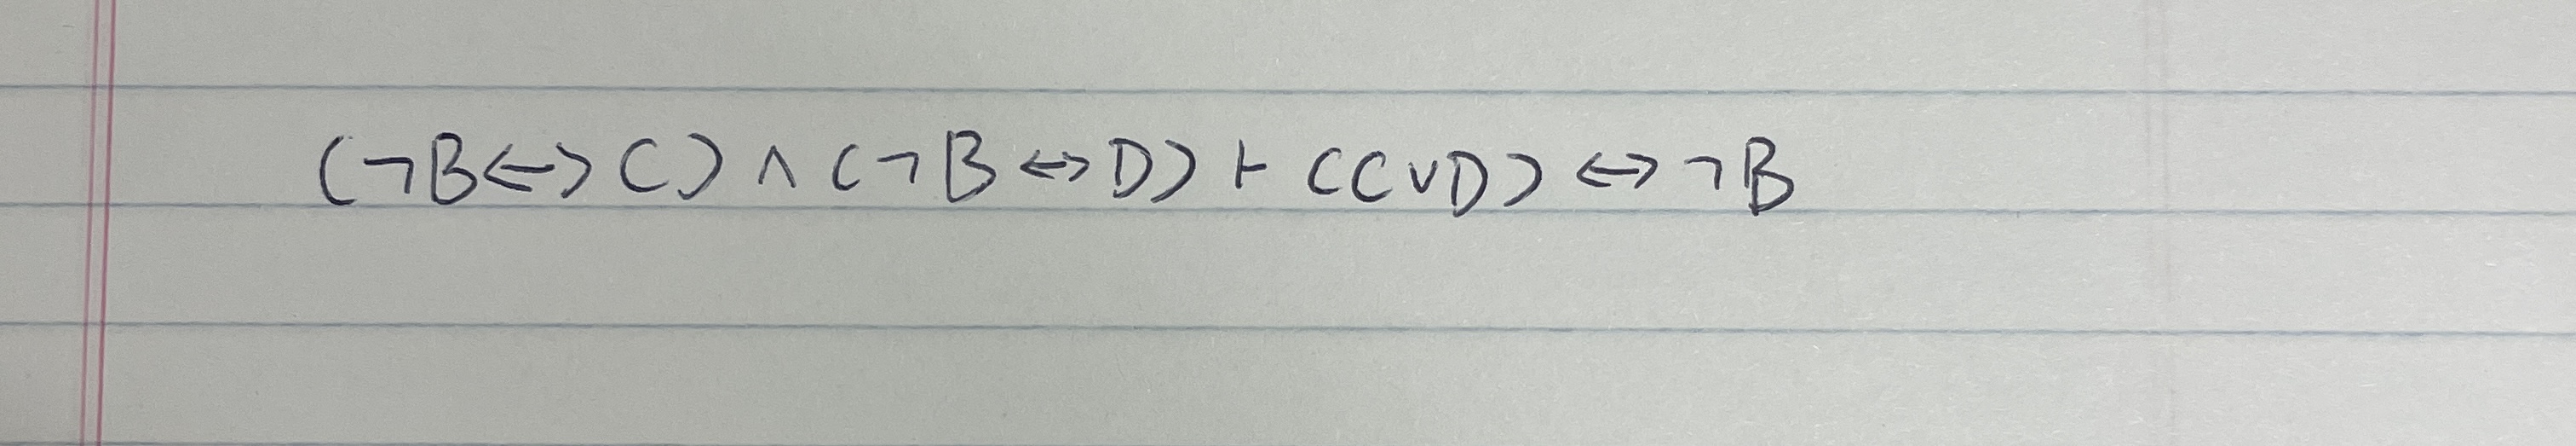 (¬B↔C)∧(¬B↔D)⊢(C∨D)↔¬B